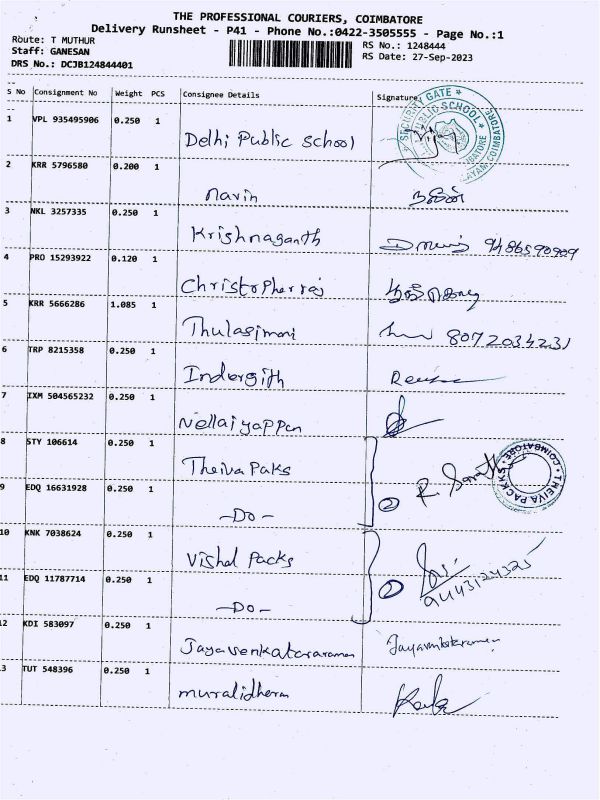 THE PROFESSIONAL COURIERS, COIMBATORE
Delivery Runsheet - P41 - Phone No.:0422-3505555 - Page No.:1
Route: T MUTHUR
RS No.: 1248444
Staff: GANESAN
RS Date: 27-Sep-2023
DRS No.: DCJB124844401
S No Consignment No Weight PCS Consignee Details Signature
SECURITY GATE PUBLIC SCHOOL COIMBATORE
1 VPL 935495906 0.250 1
Delhi Public School
2 KRR 5796580 0.200 1
Navin நவீன்
3 NKL 3257335 0.250 1
Krishnaganth 9486590909
4 PRO 15293922 0.120 1
Christopherraj
5 KRR 5666286 1.085 1
Thulasimani 8072034231
6 TRP 8215358 0.250 1
Indergith
7 IXM 504565232 0.250 1
Nellaiyappan
8 STY 106614 0.250 1
Theiva Paks
THEIVA PACKS COIMBATORE
9 EDQ 16631928 0.250 1
-Do- 2
10 KNK 7038624 0.250 1
Vishal Packs
11 EDQ 11787714 0.250 1
2 9443124325
-Do-
12 KDI 583097 0.250 1
Jayavenkataraman Jayavenkataraman
13 TUT 548396 0.250 1
muralidharan